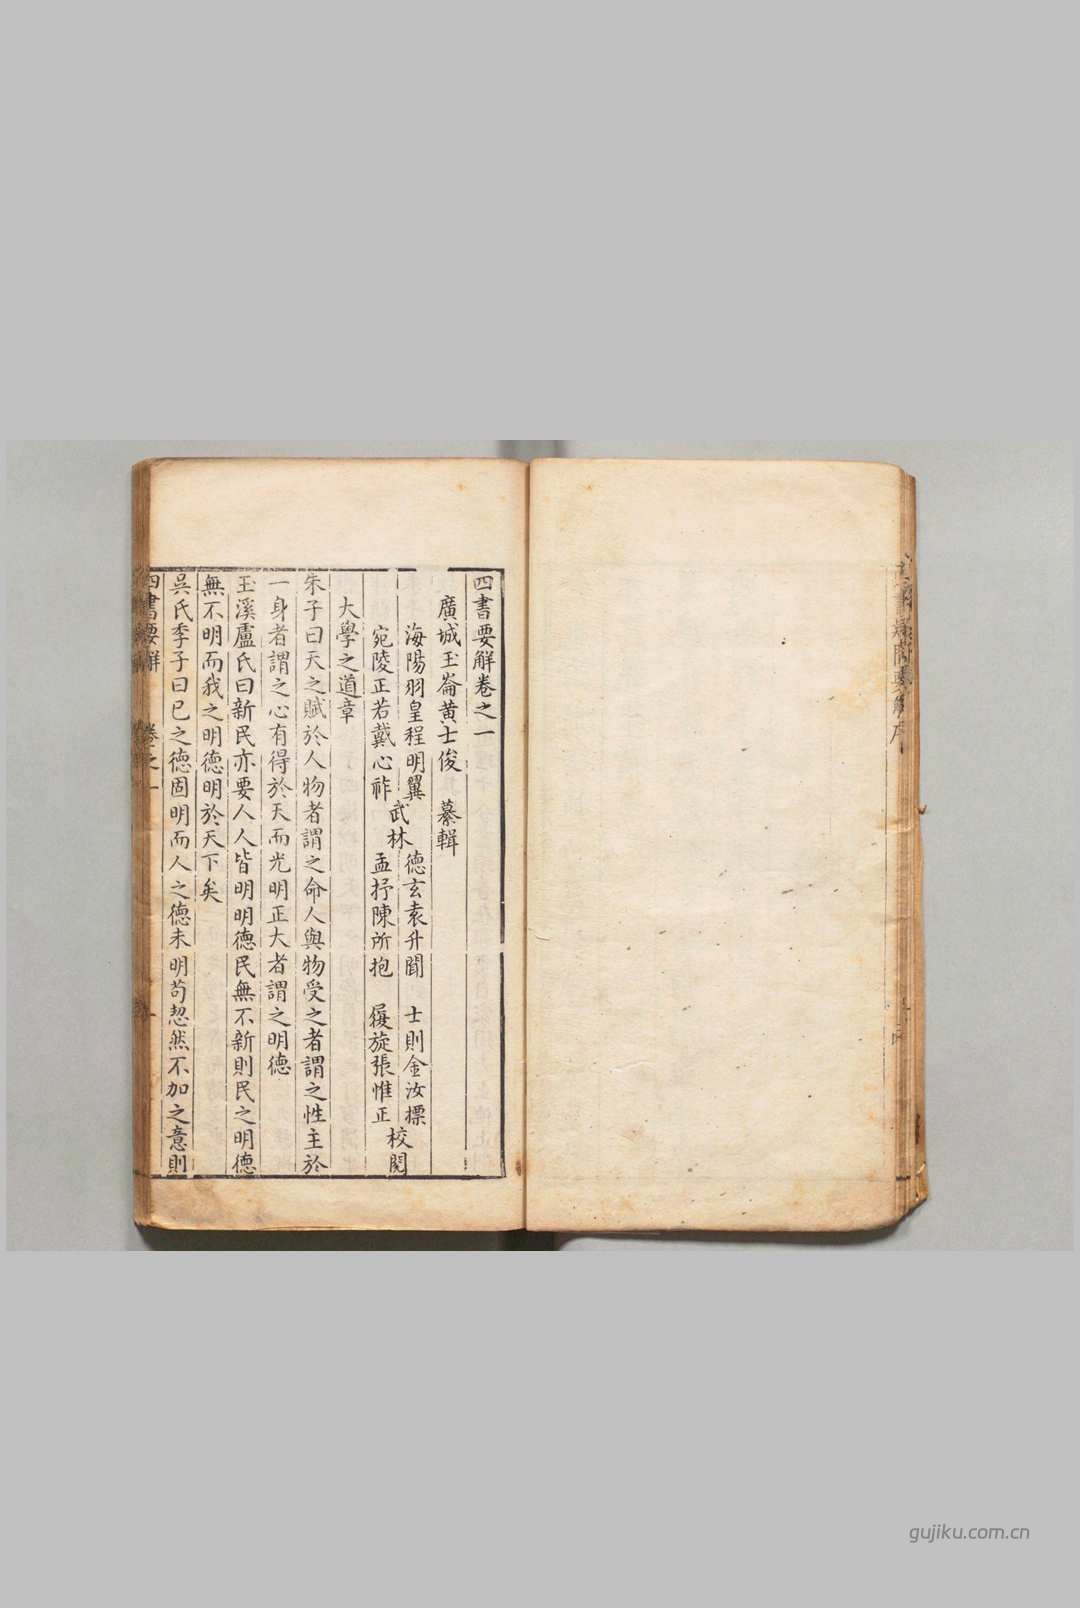 四書要解卷之一
廣城玉崙黃士俊 纂輯
海陽羽皇程明翼 德玄袁升聞 士則金汝標
武林 校閱
宛陵正若戴心祚 孟抒陳所抱 履旋張惟正
大學之道章
朱子曰天之賦於人物者謂之命人與物受之者謂之性主於
一身者謂之心有得於天而光明正大者謂之明德
玉溪盧氏曰新民亦要人人皆明明德民無不新則民之明德
無不明而我之明德明於天下矣
吳氏季子曰已之德固明而人之德未明苟恝然不加之意則
四書要解 卷之一
gujiku.com.cn